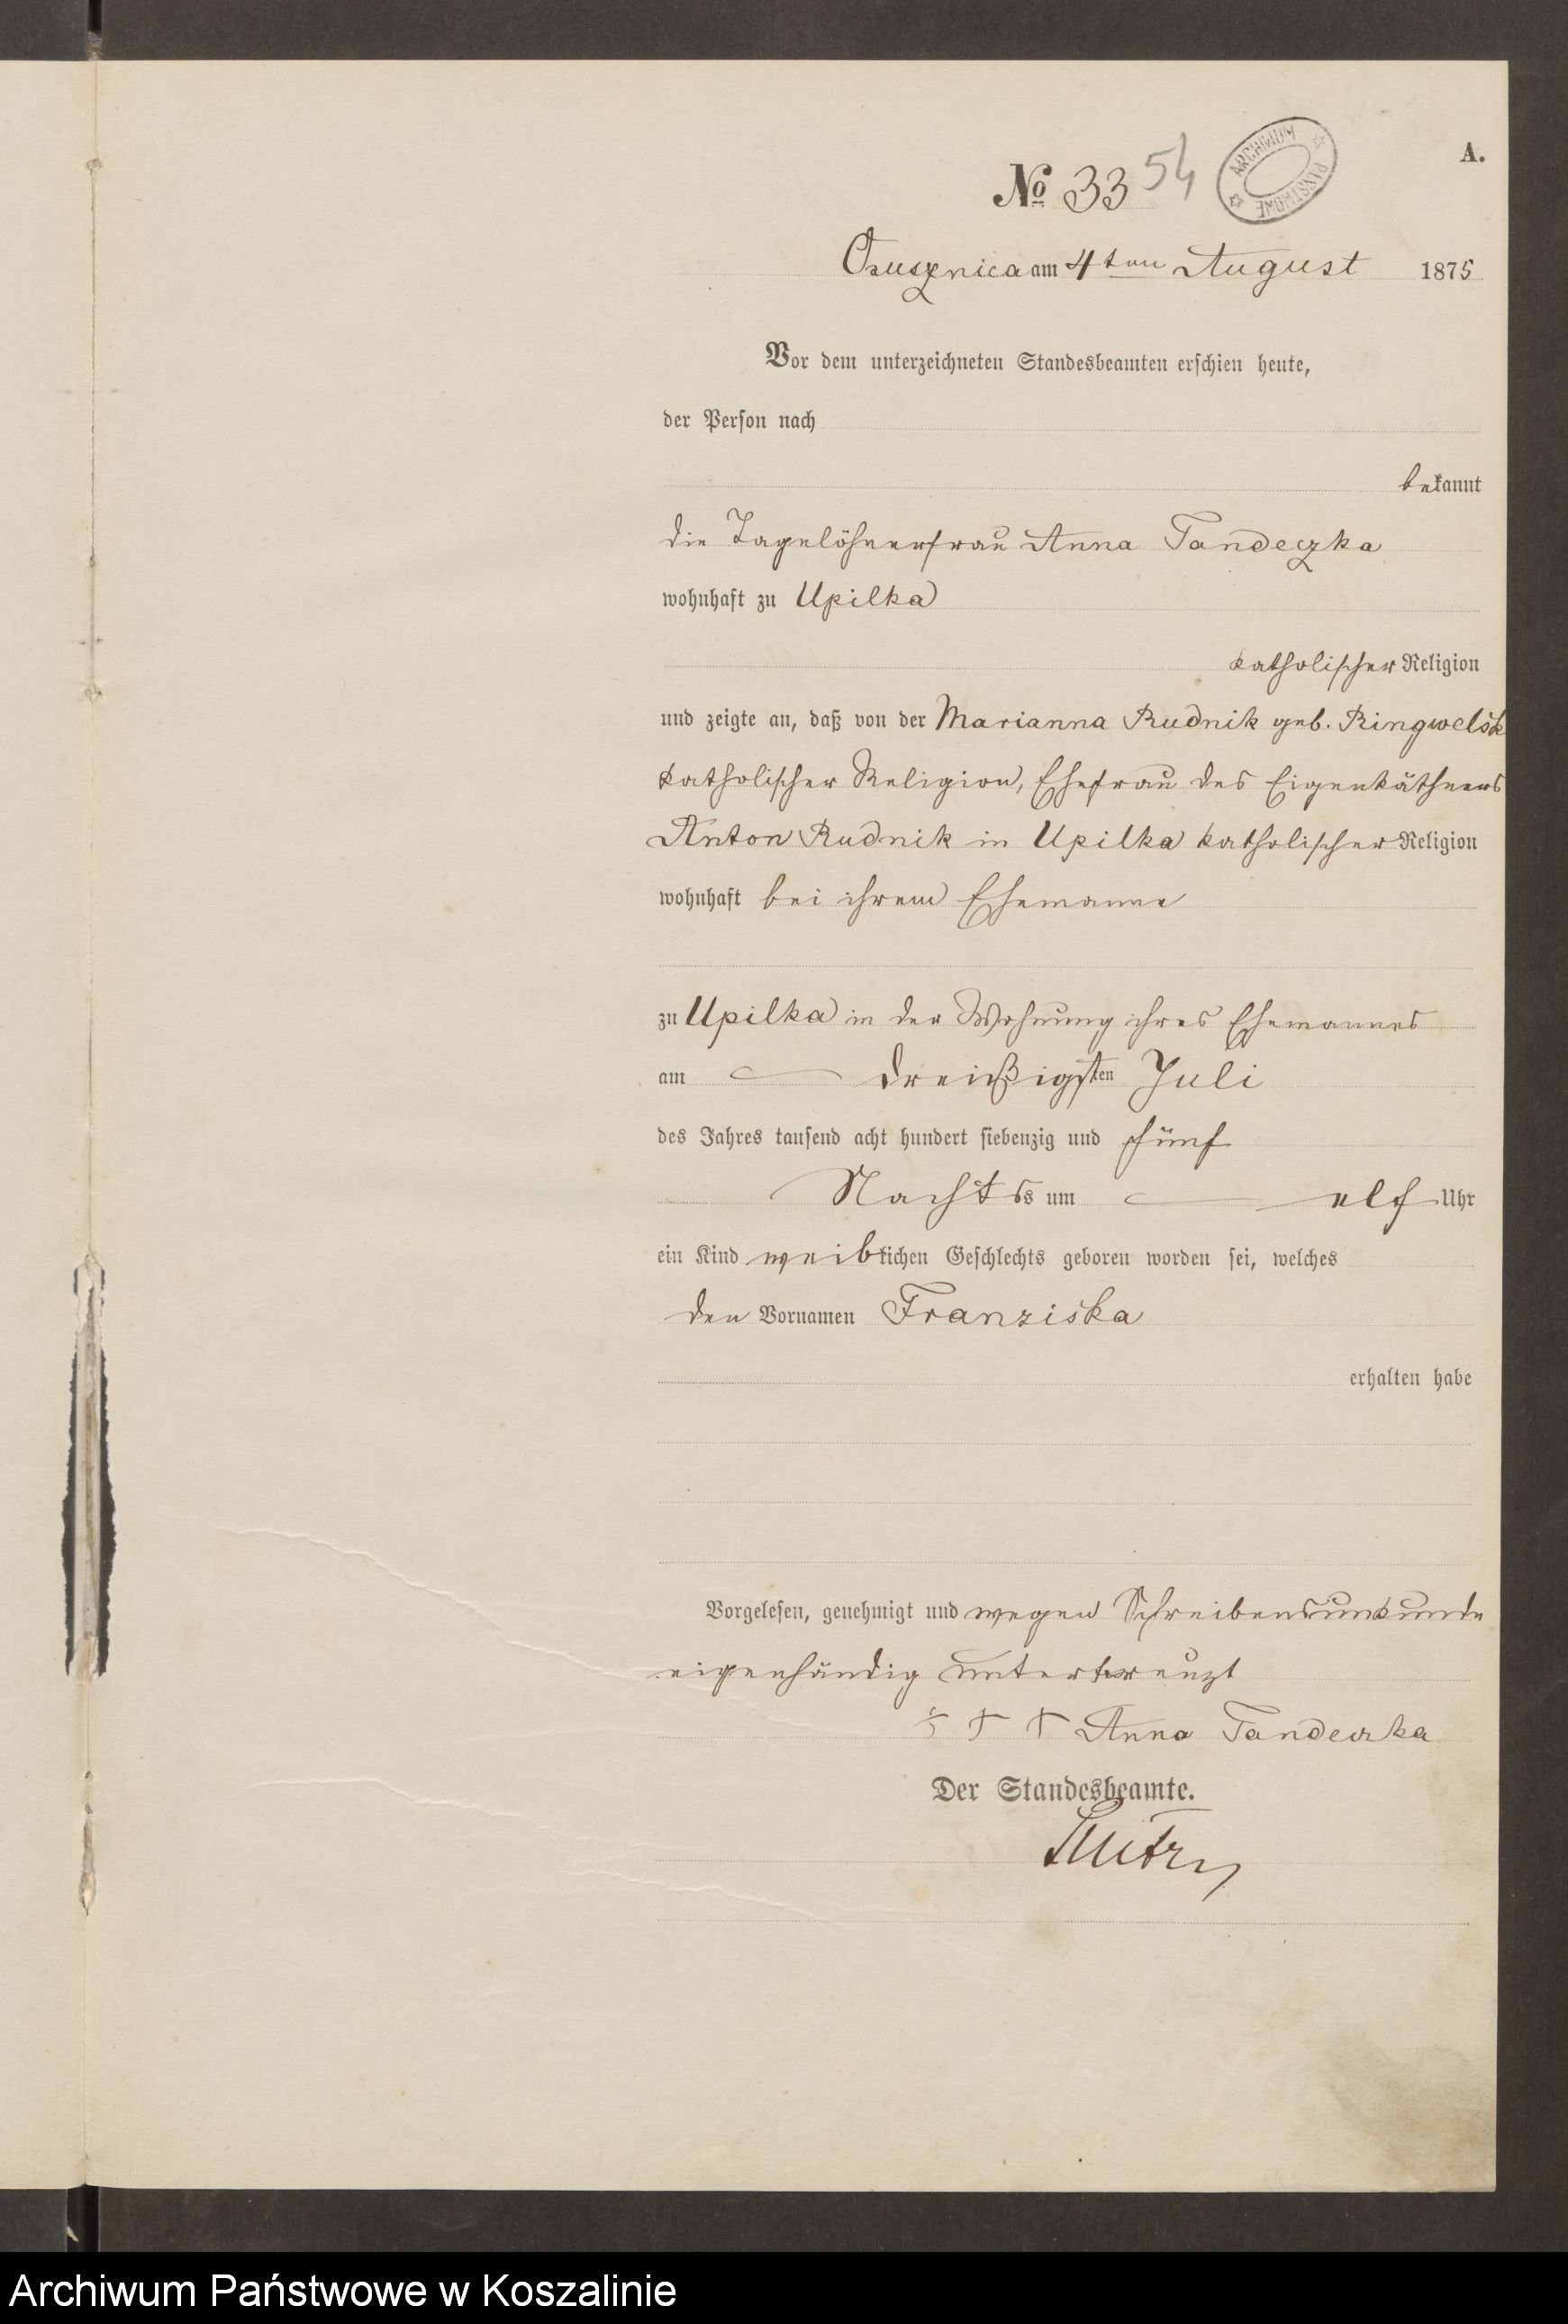 A.
No 33 54
ARCHIWUM PAŃSTWOWE
Osusznica am 4ten August 1875
Vor dem unterzeichneten Standesbeamten erschien heute,
der Person nach
bekannt
die Tagelöhnerfrau Anna Tandeczka
wohnhaft zu Upilka
katholischer Religion
und zeigte an, daß von der Marianna Rudnik geb. Ringwelsk
katholischer Religion, Ehefrau des Eigenkäthners
Anton Rudnik in Upilka katholischer Religion
wohnhaft bei ihrem Ehemanne
zu Upilka in der Wohnung ihres Ehemannes
am dreißigsten Juli
des Jahres tausend acht hundert siebenzig und fünf
Nachts um elf Uhr
ein Kind weiblichen Geschlechts geboren worden sei, welches
den Vornamen Franziska
erhalten habe
Vorgelesen, genehmigt und wegen Schreibensunkunde
eigenhändig unterkreuzt
+ + + Anna Tandeczka
Der Standesbeamte.
Archiwum Państwowe w Koszalinie